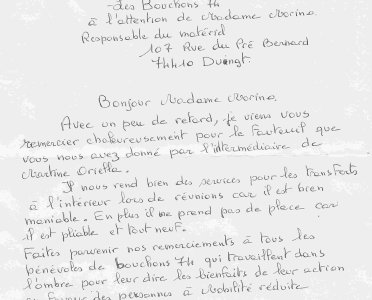 -des Bouchons 74
à l'attention de Madame Morino
Responsable du matériel
107 Rue du Pré Bernard
74410 Duingt.
Bonjour Madame Morino.
Avec un peu de retard, je viens vous
remercier chaleureusement pour le Fauteuil que
vous nous avez donné par l'intermédiaire de
Martine Oriella.
Il nous rend bien des services pour les transferts
à l'intérieur lors de réunions car il est bien
maniable. En plus il ne prend pas de place car
il est pliable et tout neuf.
Faites parvenir nos remerciements à tous les
bénévoles de bouchons 74 qui travaillent dans
l'ombre pour leur dire les bienfaits de leur action
en faveur des personnes à Mobilité réduite